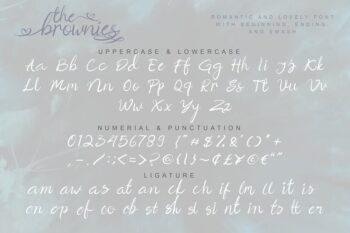 the
brownies
ROMANTIC AND LOVELY FONT
WITH BEGINNING, ENDING,
AND SWASH
UPPERCASE & LOWERCASE
Aa Bb Cc Dd Ee Ff Gg Hh Ii Jj Kk
Ll Mm Nn Oo Pp Qq Rr Ss Tt Uu Vv
Ww Xx Yy Zz
NUMERIAL & PUNCTUATION
0123456789
LIGATURE
am aw as at an ck ch if lm ll it is
on op of co cb st sh sl si nt in ts tt er